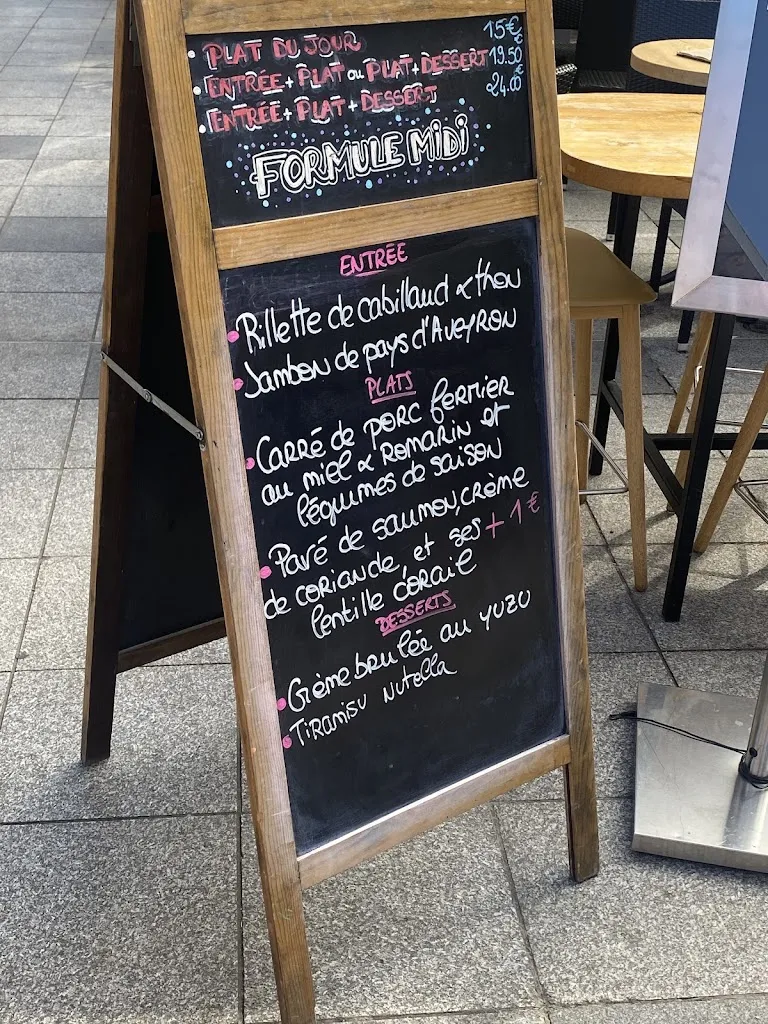 PLAT DU JOUR 15€
ENTRÉE + PLAT ou PLAT + DESSERT 19.50€
ENTRÉE + PLAT + DESSERT 24.00€
FORMULE MIDI
ENTRÉE
Rillette de cabillaud & thon
Jambon de pays d'AVEYRON
PLATS
CARRÉ DE PORC fermier
au miel & ROMARIN et
légumes de saison
Pavé de saumon, crème
de coriande, et ses + 1€
lentille corail
DESSERTS
Crème brulée au yuzu
TIRAMISU NUTELLA